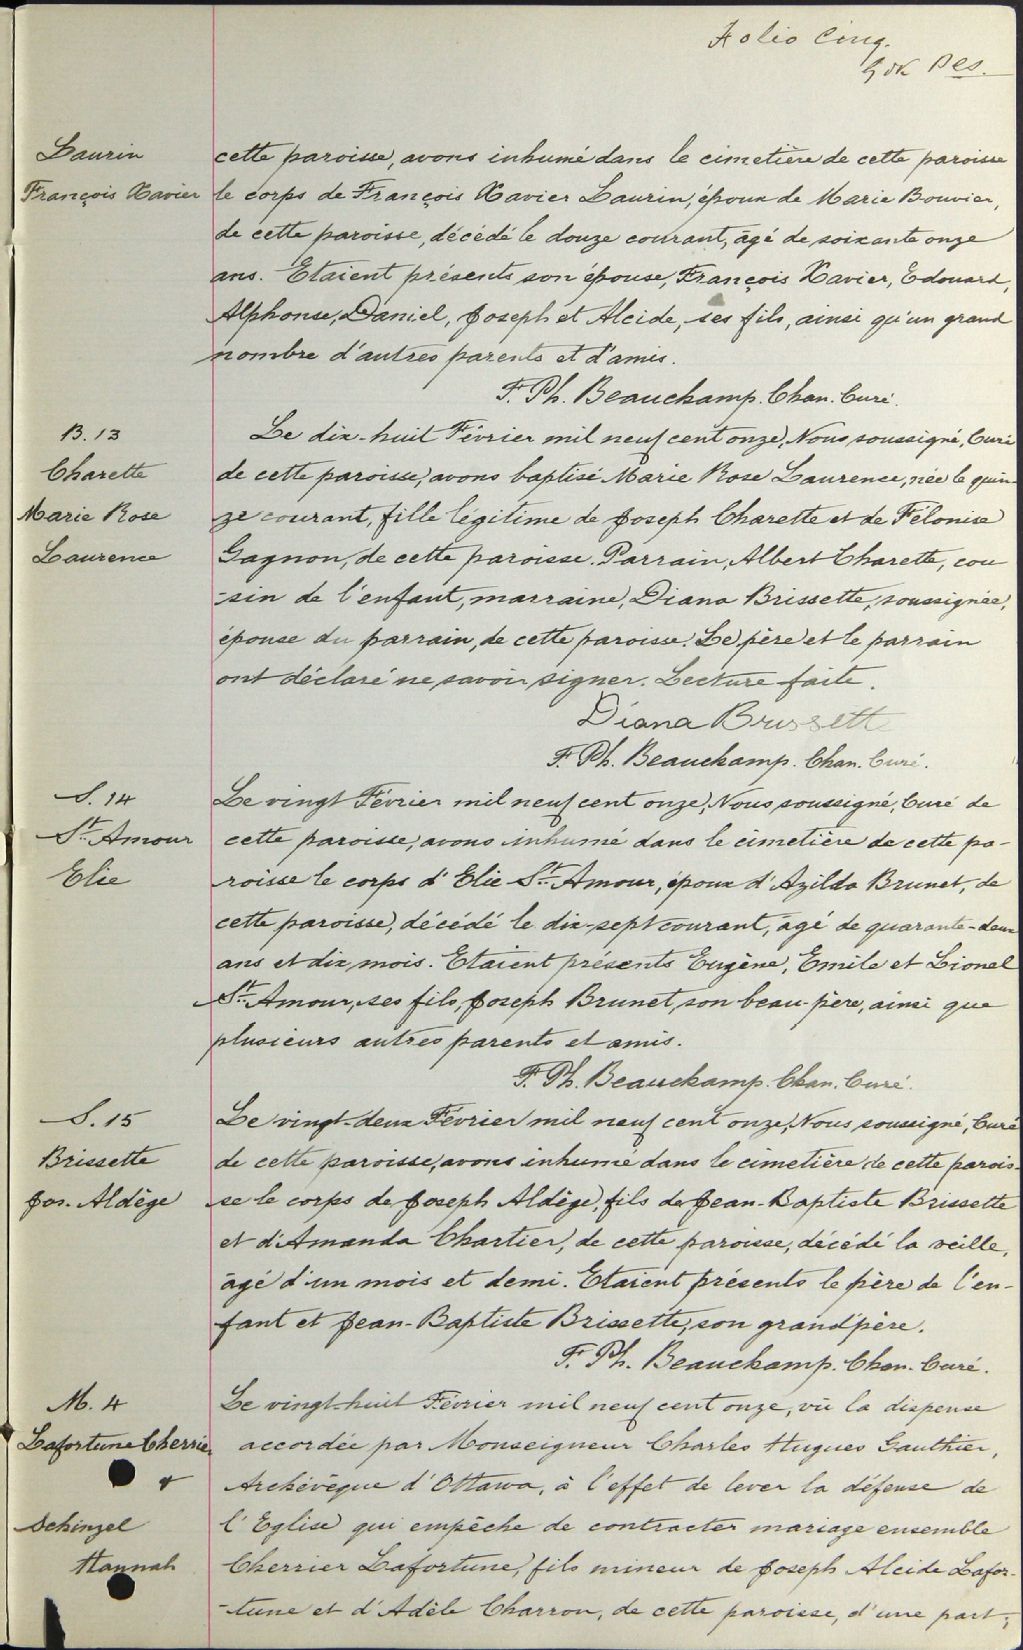 Folio Cinq.
Des.
Laurin
François Xavier
cette paroisse, avons inhumé dans le cimetière de cette paroisse
le corps de François Xavier Laurin, époux de Marie Bouvier,
de cette paroisse, décédé le douze courant, âgé de soixante onze
ans. Etaient présents son épouse, François Xavier, Edouard,
Alphonse, Daniel, Joseph et Alcide, ses fils, ainsi qu'un grand
nombre d'autres parents et d'amis.
F. Ph. Beauchamp. Chan. Curé.
B. 13
Charette
Marie Rose
Laurence
Le dix-huit Février mil neuf cent onze, Nous soussigné, Curé
de cette paroisse, avons baptisé Marie Rose Laurence, née le quin-
ze courant, fille légitime de Joseph Charette et de Félonise
Gagnon, de cette paroisse. Parrain, Albert Charette, cou
-sin de l'enfant, marraine, Diana Brissette, soussignée,
épouse du parrain, de cette paroisse. Le père et le parrain
ont déclaré ne savoir signer. Lecture faite.
Diana Brissette
F. Ph. Beauchamp. Chan. Curé.
S. 14
St. Amour
Elie
Le vingt Février mil neuf cent onze, Nous soussigné, Curé de
cette paroisse, avons inhumé dans le cimetière de cette pa-
roisse le corps d'Elie St. Amour, époux d'Azilda Brunet, de
cette paroisse, décédé le dix-sept courant, âgé de quarante-deux
ans et dix mois. Etaient présents Eugène, Emile et Lionel
St. Amour, ses fils, Joseph Brunet, son beau-père, ainsi que
plusieurs autres parents et amis.
F. Ph. Beauchamp. Chan. Curé.
S. 15
Brissette
Jos. Aldège
Le vingt-deux Février mil neuf cent onze, Nous soussigné, Curé
de cette paroisse, avons inhumé dans le cimetière de cette parois-
se le corps de Joseph Aldège, fils de Jean-Baptiste Brissette
et d'Amanda Chartier, de cette paroisse, décédé la veille,
âgé d'un mois et demi. Etaient présents le père de l'en-
fant et Jean-Baptiste Brissette, son grand'père.
F. Ph. Beauchamp. Chan. Curé.
M. 4
Lafortune Cherrier
&
Schinzel
Hannah
Le vingt-huit Février mil neuf cent onze, vû la dispense
accordée par Monseigneur Charles Hugues Gauthier,
Archévêque d'Ottawa, à l'effet de lever la défense de
l'Eglise qui empêche de contracter mariage ensemble
Cherrier Lafortune, fils mineur de Joseph Alcide Lafor-
-tune et d'Adèle Charron, de cette paroisse, d'une part;